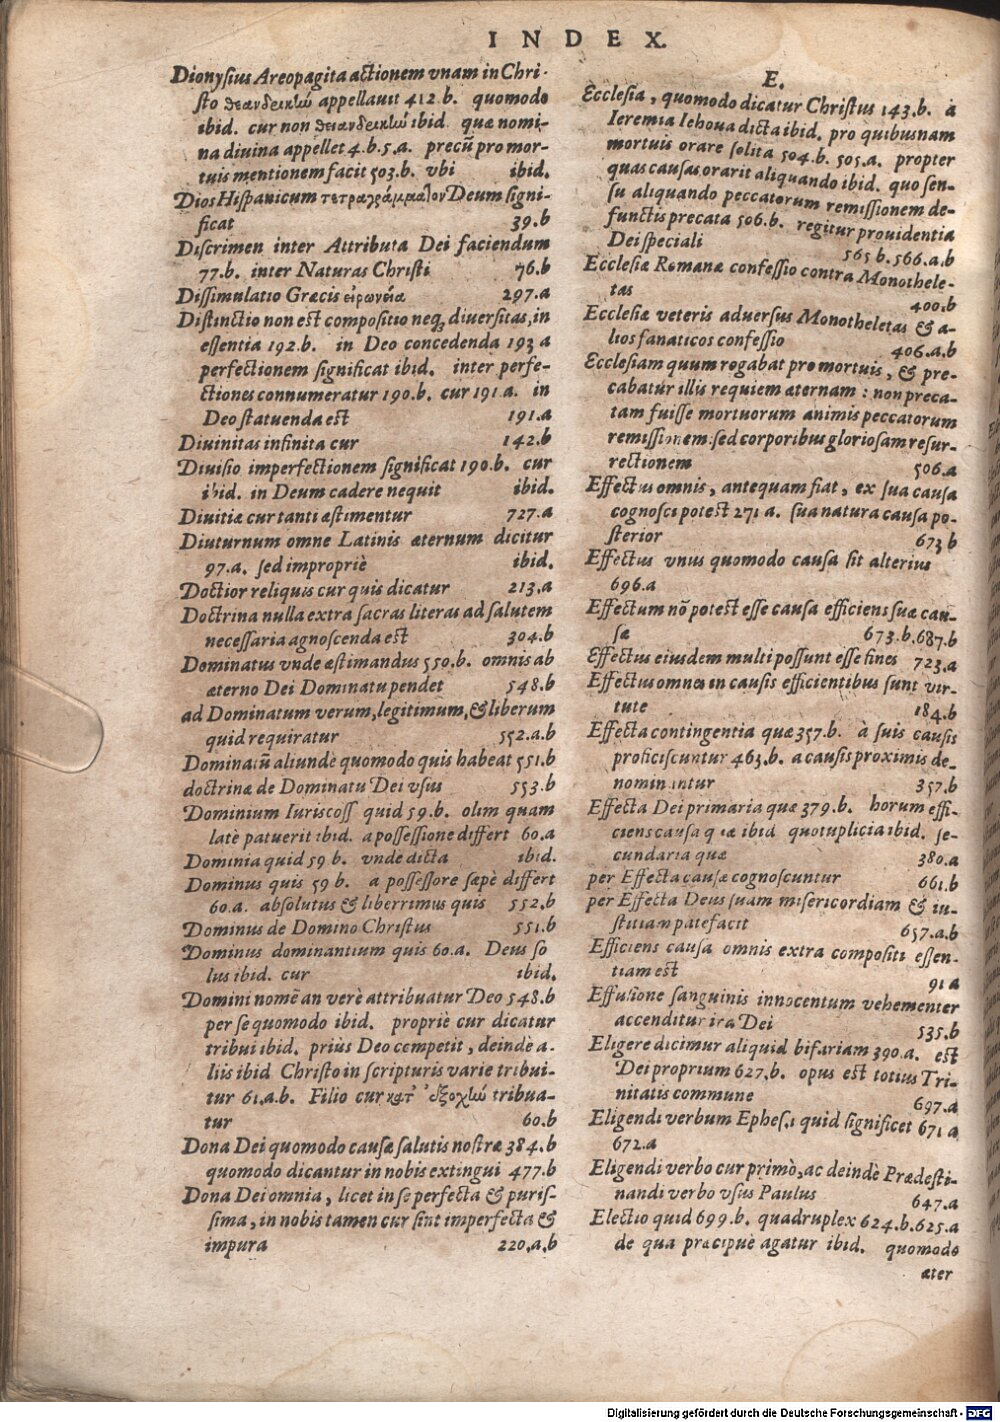 INDEX.
Dionysius Areopagita actionem vnam in Chri-
sto θεανδρικὼ appellauit 412.b. quomodo
ibid. cur non θειανδρικὼ ibid. quæ nomi-
na diuina appellet 4.b.5.a. precū pro mor-
tuis mentionem facit 503.b. vbi ibid.
Dios Hispanicum τετραγράμματον Deum signi-
ficat 39.b
Discrimen inter Attributa Dei faciendum
77.b. inter Naturas Christi 76.b
Dissimulatio Græcis εἰρωνεία 297.a
Distinctio non est compositio neq, diuersitas, in
essentia 192.b. in Deo concedenda 193 a
perfectionem significat ibid. inter perfe-
ctiones connumeratur 190.b. cur 191.a. in
Deo statuenda est 191.a
Diuinitas infinita cur 142.b
Diuisio imperfectionem significat 190.b. cur
ibid. in Deum cadere nequit ibid.
Diuitiæ cur tanti æstimentur 727.a
Diuturnum omne Latinis æternum dicitur
97.a. sed impropriè ibid.
Doctior reliquis cur quis dicatur 213.a
Doctrina nulla extra sacras literas ad salutem
necessaria agnoscenda est 304.b
Dominatus vnde æstimandus 550.b. omnis ab
æterno Dei Dominatu pendet 548.b
ad Dominatum verum, legitimum, & liberum
quid requiratur 552.a.b
Dominatū aliundè quomodo quis habeat 551.b
doctrinæ de Dominatu Dei vsus 553.b
Dominium Iuriscoss quid 59.b. olim quam
latè patuerit ibid. a possessione differt 60.a
Dominia quid 59 b. vnde dicta ibid.
Dominus quis 59 b. a possessore sæpè differt
60.a. absolutus & liberrimus quis 552.b
Dominus de Domino Christus 551.b
Dominus dominantium quis 60.a. Deus so
lus ibid. cur ibid.
Domini nomē an verè attribuatur Deo 548.b
per se quomodo ibid. propriè cur dicatur
tribui ibid. priùs Deo competit, deindè a-
liis ibid Christo in scripturis varie tribui-
tur 61.a.b. Filio cur κατ' ἐξοχὼ tribua-
tur 60.b
Dona Dei quomodo causæ salutis nostræ 384.b
quomodo dicantur in nobis extingui 477.b
Dona Dei omnia, licet in se perfecta & puris-
sima, in nobis tamen cur sint imperfecta &
impura 220.a.b
E.
Ecclesia, quomodo dicatur Christus 143.b. à
Ieremia Iehoua dicta ibid. pro quibusnam
mortuis orare solita 504.b. 505.a. propter
quas causas orarit aliquando ibid. quo sen-
su aliquando peccatorum remissionem de-
functis precata 506.b. regitur prouidentia
Dei speciali 565 b.566.a.b
Ecclesiæ Romanæ confessio contra Monothele-
tas 400.b
Ecclesiæ veteris aduersus Monotheletas & a-
lios fanaticos confessio 406.a.b
Ecclesiam quum rogabat pro mortuis, & pre-
cabatur illis requiem æternam : non preca-
tam fuisse mortuorum animis peccatorum
remissionem: sed corporibus gloriosam resur-
rectionem 506.a
Effectus omnis, antequam fiat, ex sua causa
cognosci potest 271 a. sua natura causa po-
sterior 673 b
Effectus vnus quomodo causa sit alterius
696.a
Effectum nō potest esse causa efficiens suæ cau-
sæ 673.b.687.b
Effectus eiusdem multi possunt esse fines 723.a
Effectus omnes in causis efficientibus sunt vir-
tute 184.b
Effecta contingentia quæ 357.b. à suis causis
proficiscuntur 463.b. a causis proximis de-
nominantur 357.b
Effecta Dei primaria quæ 379.b. horum effi-
ciens causa quæ ibid quotuplicia ibid. se-
cundaria quæ 380.a
per Effecta causæ cognoscuntur 661.b
per Effecta Deus suam misericordiam & iu-
stitiam patefacit 657.a.b
Efficiens causa omnis extra compositi essen-
tiam est 91 a
Effusione sanguinis innocentum vehementer
accenditur ira Dei 535.b
Eligere dicimur aliquid bifariam 390.a. est
Dei proprium 627.b. opus est totius Tri-
nitatis commune 697.a
Eligendi verbum Ephes.1 quid significet 671 a
672.a
Eligendi verbo cur primò, ac deindè Prædesti-
nandi verbo vsus Paulus 647.a
Electio quid 699.b. quadruplex 624.b.625.a
de qua præcipuè agatur ibid. quomodo
æter
Digitalisierung gefördert durch die Deutsche Forschungsgemeinschaft - DFG